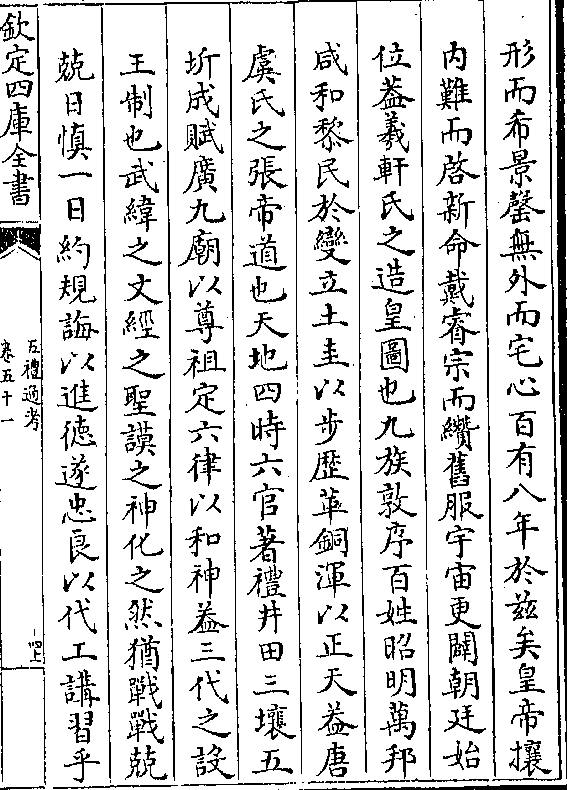 形而希景罄無外而宅心百有八年於兹矣皇帝攘
内難而啓新命戴睿宗而纘舊服宇宙更闢朝廷始
位葢羲軒氏之造皇圖也九族敦序百姓昭明萬邦
咸和黎民於變立土圭以步歴革銅渾以正天葢唐
虞氏之張帝道也天地四時六官著禮井田三壤五
圻成賦廣九廟以尊祖定六律以和神葢三代之設
王制也武緯之文經之聖謨之神化之然猶戰戰兢
兢日慎一日約規誨以進徳遂忠良以代工講習乎
欽定四庫全書
五禮通考
卷五十一
四上